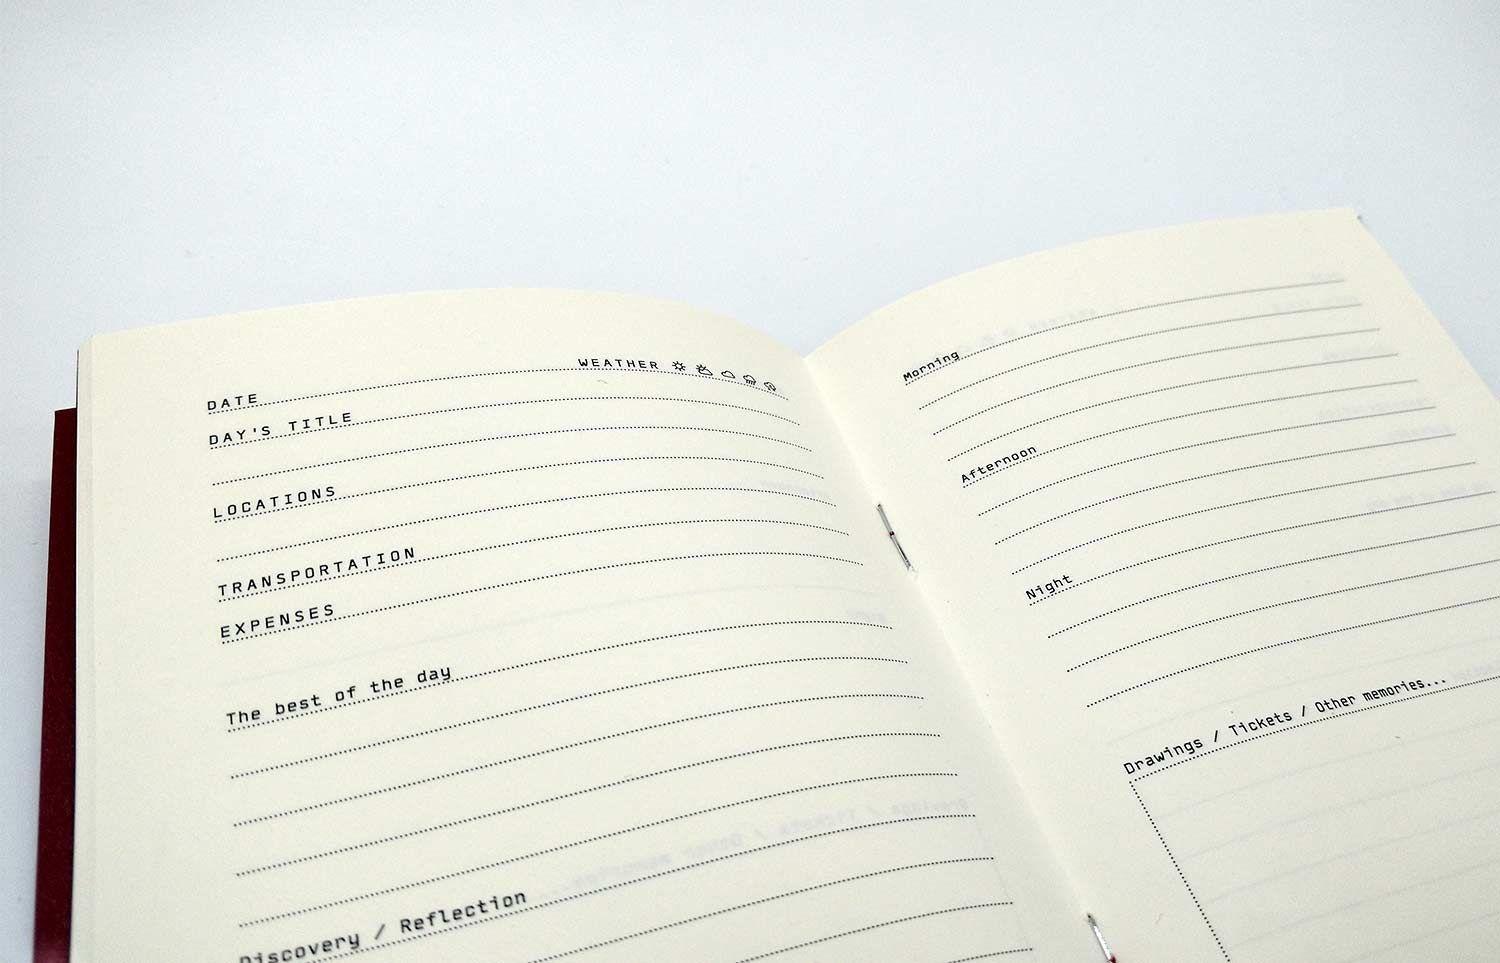 DATE WEATHER
DAY'S TITLE
LOCATIONS
TRANSPORTATION
EXPENSES
The best of the day
Discovery / Reflection
Morning
Afternoon
Night
Drawings / Tickets / Other memories...